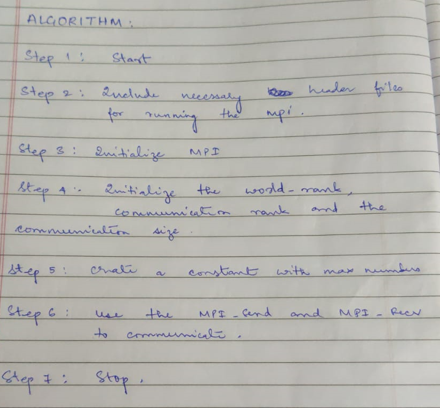 ALGORITHM:
Step 1: Start
Step 2: Include necessary header files
for running the mpi.
Step 3: Initialize MPI
Step 4: Initialize the world-rank,
communication rank and the
communication size.
Step 5: Create a constant with max numbers
Step 6: Use the MPI_Send and MPI_Recv
to communicate.
Step 7: Stop.